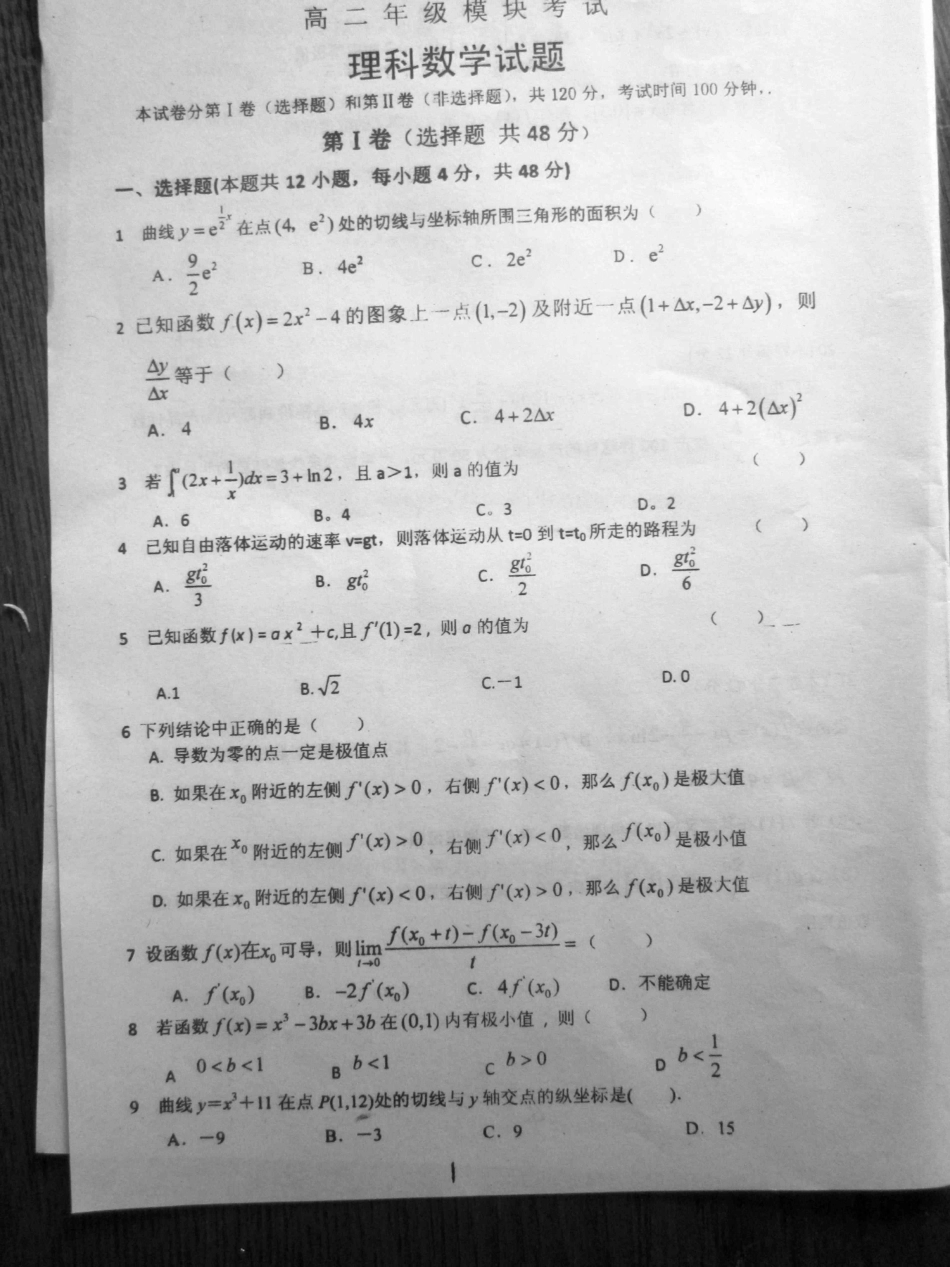 高二年级模块考试
理科数学试题
本试卷分第Ⅰ卷（选择题）和第Ⅱ卷（非选择题），共 120 分，考试时间 100 分钟．.
第Ⅰ卷（选择题 共 48 分）
一、选择题(本题共 12 小题，每小题 4 分，共 48 分)
1 曲线 y=e^{\frac{1}{2}x} 在点(4，e²)处的切线与坐标轴所围三角形的面积为（ ）
A．\frac{9}{2}e² B．4e² C．2e² D．e²
2 已知函数 f(x)=2x²-4 的图象上一点(1,-2)及附近一点(1+Δx,-2+Δy)，则
\frac{Δy}{Δx} 等于（ ）
A．4 B．4x C．4+2Δx D．4+2(Δx)²
3 若 ∫_1^a (2x+\frac{1}{x})dx=3+ln2，且 a＞1，则 a 的值为 （ ）
A．6 B。4 C。3 D。2
4 已知自由落体运动的速率 v=gt，则落体运动从 t=0 到 t=t₀ 所走的路程为 （ ）
A．\frac{gt_0^2}{3} B．gt_0^2 C．\frac{gt_0^2}{2} D．\frac{gt_0^2}{6}
5 已知函数 f(x)=ax²+c,且 f′(1)=2，则 a 的值为 （ ）
A.1 B.√2 C.－1 D. 0
6 下列结论中正确的是（ ）
A. 导数为零的点一定是极值点
B. 如果在 x₀ 附近的左侧 f'(x)>0，右侧 f'(x)<0，那么 f(x₀) 是极大值
C. 如果在 x₀ 附近的左侧 f'(x)>0，右侧 f'(x)<0，那么 f(x₀) 是极小值
D. 如果在 x₀ 附近的左侧 f'(x)<0，右侧 f'(x)>0，那么 f(x₀) 是极大值
7 设函数 f(x)在x₀ 可导，则 \lim_{t→0} \frac{f(x₀+t)-f(x₀-3t)}{t}=（ ）
A．f'(x₀) B．-2f'(x₀) C．4f'(x₀) D．不能确定
8 若函数 f(x)=x³-3bx+3b 在(0,1)内有极小值，则（ ）
A 0<b<1 B b<1 C b>0 D b<\frac{1}{2}
9 曲线 y=x³＋11 在点 P(1,12)处的切线与 y 轴交点的纵坐标是( ).
A．－9 B．－3 C．9 D．15
1